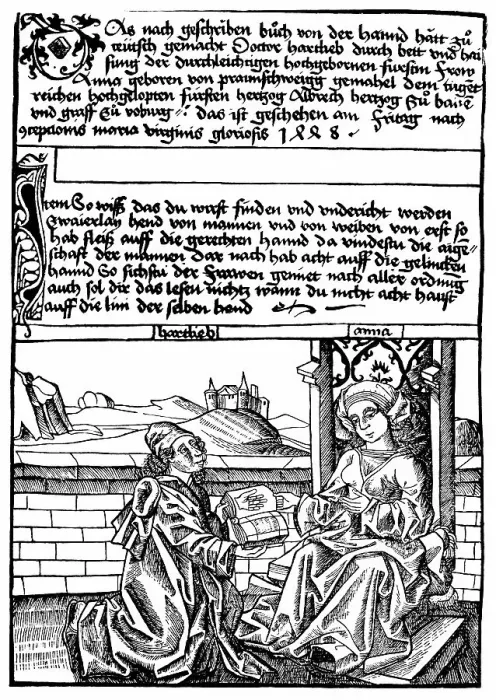 Das nach geschriben bůch von der hannd hätt zů
teütsch gemacht Doctor hartlieb durch bett vnd hai
sung der durchleichtigen hochgebornen fürstin frow
Anna geboren von praunschweigg gemahel dem tuget
reichen hochgelopten fürsten hertzog Albrech hertzog zů baire
vnd graff zů voburg das ist geschehen am fritag nach
9ceptionis maria virginis gloriosis 1448
Item So wiß das du wirst finden vnd vndericht werden
Zwaierlay hend von mannen vnd von weiben von erst so
hab fleiß auff die gerechten hannd da vindestu die aige=
schafft der mannen dar nach hab acht auff die gelincken
hannd So sichstu der frawen geniet nach aller ordnung
auch sol dir das lesen nichtz wann du nicht acht haust
auff die lini der selben hend
hartlieb
anna